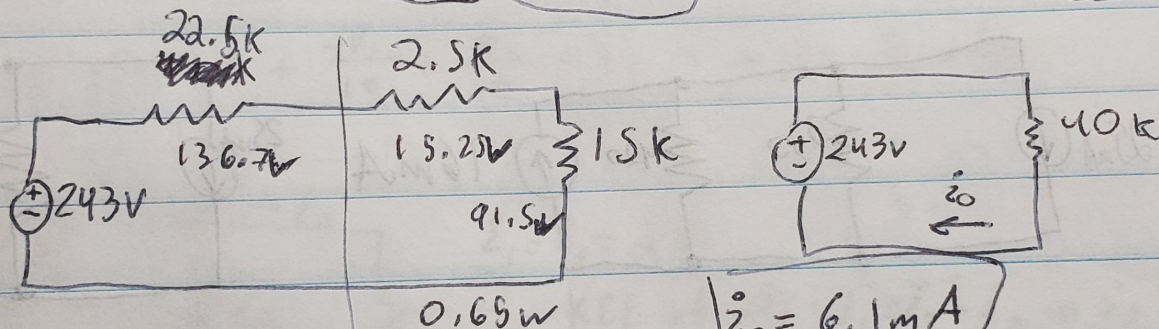 22.5K
2.5K
136.7W
15.25W
15K
243V
91.5W
0.65W
243V
40K
i₀
i₀ = 6.1mA